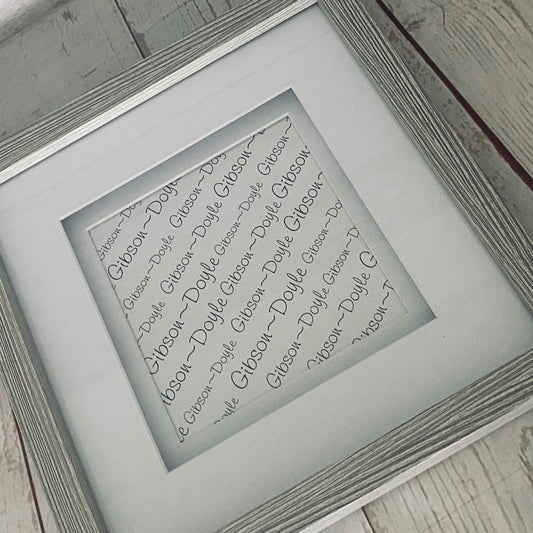 Gibson~Doyle Gibson~Do
Gibson~Doyle Gibson~
Gibson~Doyle Gibson~Doyle Gibson~
Gibson~Doyle Gibson~Doyle Gibson~
Gibson~Doyle Gibson~Doyle Gibson~D
Gibson~Doyle Gibson~Doyle G
Gibson~Doyle Gibson~